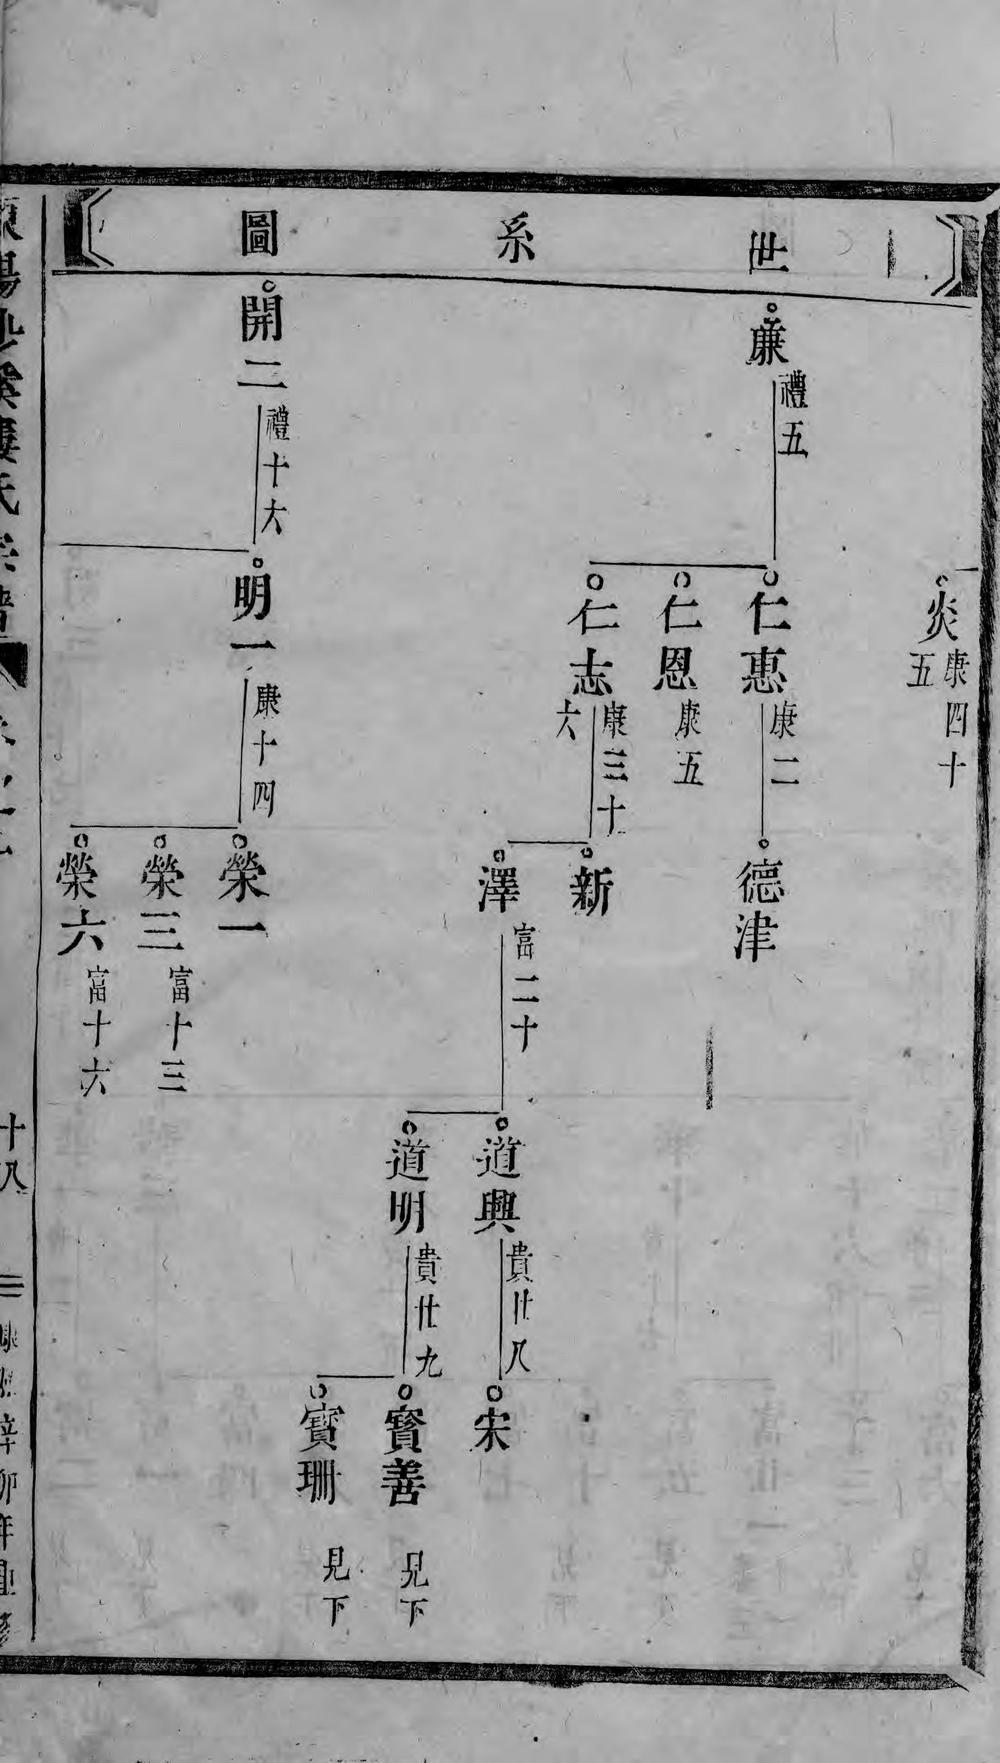 世系圖
炎 康四十五
廉 禮五
仁惠 康二
仁恩 康五
仁志 康三十六
德津
新
澤 富二十
道興 貴廿八
道明 貴廿九
宋
寳善 見下
寳珊 見下
開二 禮十六
明一 康十四
榮一
榮三 富十三
榮六 富十六
婁氏宗譜
十八